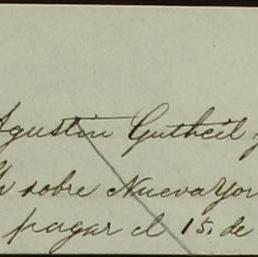 Agustin Gutheil
sobre Nueva Yor
pagar el 15. de